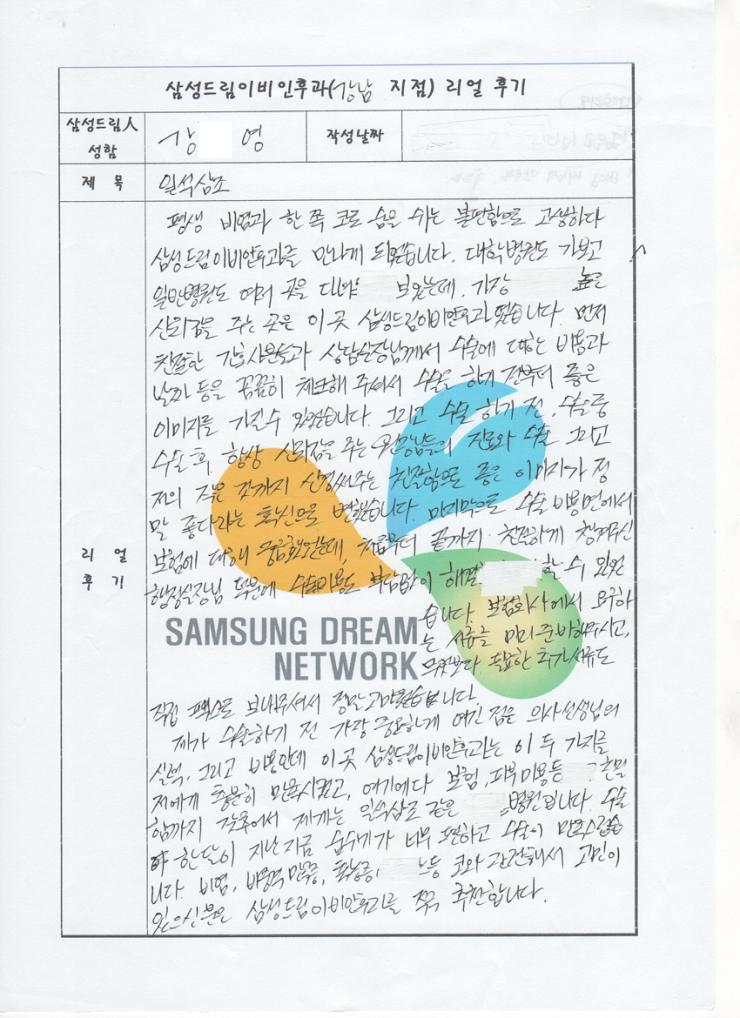 삼성드림이비인후과(강남 지점) 리얼 후기
삼성드림人 성함
강 영
작성날짜
제 목
일석삼조
리 얼 후 기
평생 비염과 한 쪽 코로 숨을 쉬는 불편함으로 고생하다
삼성드림이비인후과를 만나게 되었습니다. 대학병원도 가보고
일반병원도 여러 곳을 다녀 보았는데, 가장 높은
신뢰감을 주는 곳은 이 곳 삼성드림이비인후과였습니다. 먼저
친절한 간호사분들과 상담실장님께서 수술에 대한 비용과
날짜 등을 꼼꼼히 체크해 주셔서 수술을 하기 전부터 좋은
이미지를 가질수 있었습니다. 그리고 수술 하기 전, 수술중
수술 후, 항상 신뢰감을 주는 원장님들의 진료와 수술 그리고
저의 작은 것까지 신경써주는 친절함으로 좋은 이미지가 정
말 좋다라는 확신으로 변했습니다. 마지막으로 수술 비용면에서
보험에 대해 궁금했었는데, 처음부터 끝까지 친절하게 챙겨주신
행정실장님 덕분에 수술비용도 부담없이 해결 할 수 있었
습니다. 보험회사에서 요구하
는 서류를 미리 준비해주시고,
SAMSUNG DREAM
NETWORK
무엇보다 필요한 추가서류도
직접 팩스로 보내주셔서 정말 고마웠습니다
제가 수술하기 전 가장 중요하게 여긴 점은 의사선생님의
실력, 그리고 비용인데 이 곳 삼성드림이비인후과는 이 두 가지를
저에게 충분히 만족시켰고, 여기에다 보험, 피부미용등 친절
함까지 갖추어서 제게는 일석삼조 같은 병원입니다. 수술
후 한달이 지난 지금 숨쉬기가 너무 편하고 수술이 만족스럽습
니다. 비염, 비중격 만곡증, 축농증, 등 코와 관련해서 고민이
있으신분은 삼성드림이비인후과를 꼭, 추천합니다.